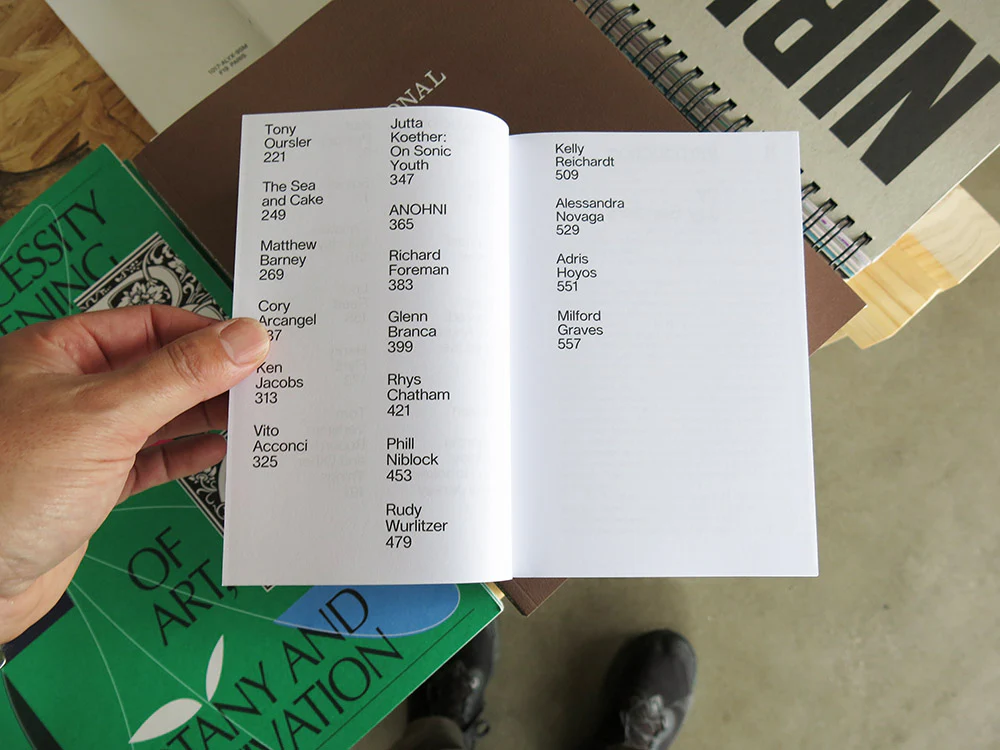 Tony
Oursler
221
The Sea
and Cake
249
Matthew
Barney
269
Cory
Arcangel
37
Ken
Jacobs
313
Vito
Acconci
325
Jutta
Koether:
On Sonic
Youth
347
ANOHNI
365
Richard
Foreman
383
Glenn
Branca
399
Rhys
Chatham
421
Phill
Niblock
453
Rudy
Wurlitzer
479
Kelly
Reichardt
509
Alessandra
Novaga
529
Adris
Hoyos
551
Milford
Graves
557
ONAL
NIR
CESSITY
ENING
OF
ART,
TANY AND
IVATION